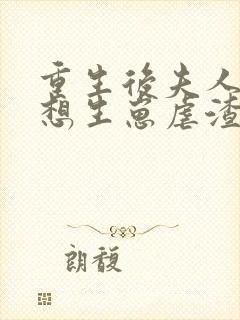 重生後夫人
想生崽虐渣
朗馥